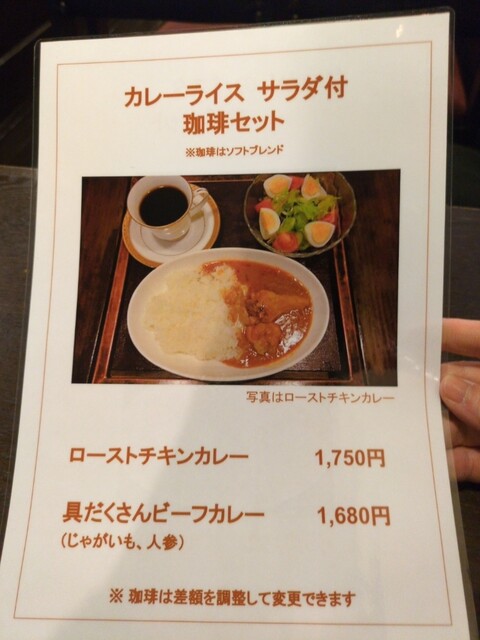 カレーライス サラダ付
珈琲セット
※珈琲はソフトブレンド
写真はローストチキンカレー
ローストチキンカレー 1,750円
具だくさんビーフカレー 1,680円
(じゃがいも、人参)
※ 珈琲は差額を調整して変更できます